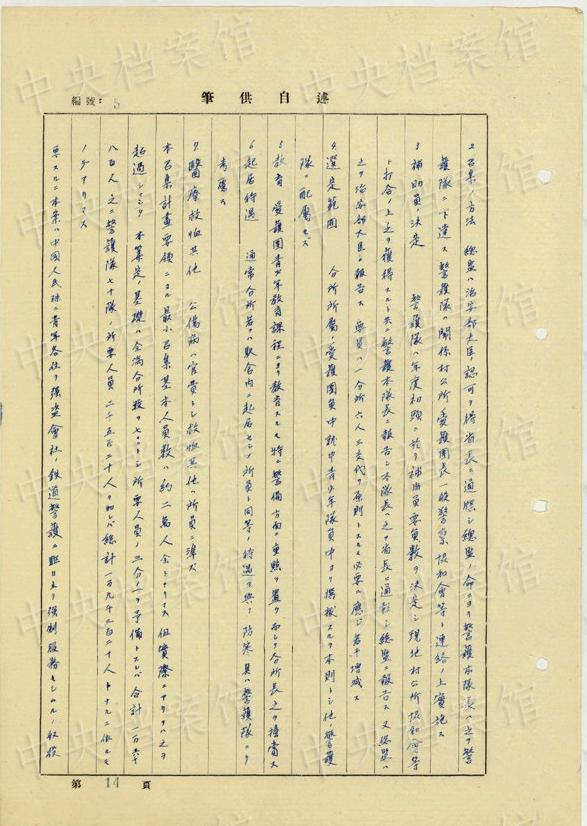 編號：5
筆供自述
2 召集ノ方法　總監ハ治安部大臣ノ認可ヲ得省長ニ通牒シ總監ノ命ニヨリ警護本隊長ハ之ヲ警
護隊ニ下達ス　警護隊ハ關係村公所愛護團長一般警察協和會等ト連絡ノ上實施ス
3 補助員決定　警護隊ハ年度初頭ニ於テ補助員要員數ヲ決定シ現地村公所協和會等
ト打合ノ上之ヲ獲得スルト共ニ警護本隊長ニ報告シ本隊長ハ之ヲ省長ニ通報シ總監ニ報告ス　又總監ハ
之ヲ治安部大臣ニ報告ス　要員ハ一分所六人三交代ヲ原則トスルモ必要ニ應ジ若干增減ス
4 選定範圍　分所所屬ノ愛護團員中就中青少年隊員中ヨリ選拔スルヲ本則トシ他ノ警護
隊ニ配屬セズ
5 教育　愛護團青少年教育課程ニヨリ教育スルモ特ニ警備方面ニ重點ヲ置ク而シテ分所長之ヲ擔當ス
6 起居待遇　通常分所若クハ駅舍内ニ起居セシメ所員ト同等ノ待遇ヲ與ヘ防寒具ハ警護隊ニテ
考慮ス
7 醫療救恤其他　公傷病ハ官費トシ救恤其他ハ所員ニ準ズ
本召集計畫要領ニヨル最小召集基本人員數ハ約二萬人余トナリマス但實際ニ於テハ之ヲ
超過シテヰマス　本算定ノ基礎ハ全滿分所數ヲ七〇〇トシ所要人員ノ三分ノ一ヲ予備トスレバ合計一万六千
八百人之ニ警護隊七十隊ノ所要人員二千五百二十人ヲ加ヘレバ總計一万九千三百二十人トナルニ依ルモ
ノデアリマス
要スルニ本案ハ中國人民殊ニ青年各位ヲ強盜會社ノ鉄道警護ニ駆リ立テ強制服務セシメル奴役
第 14 頁
中央档案馆